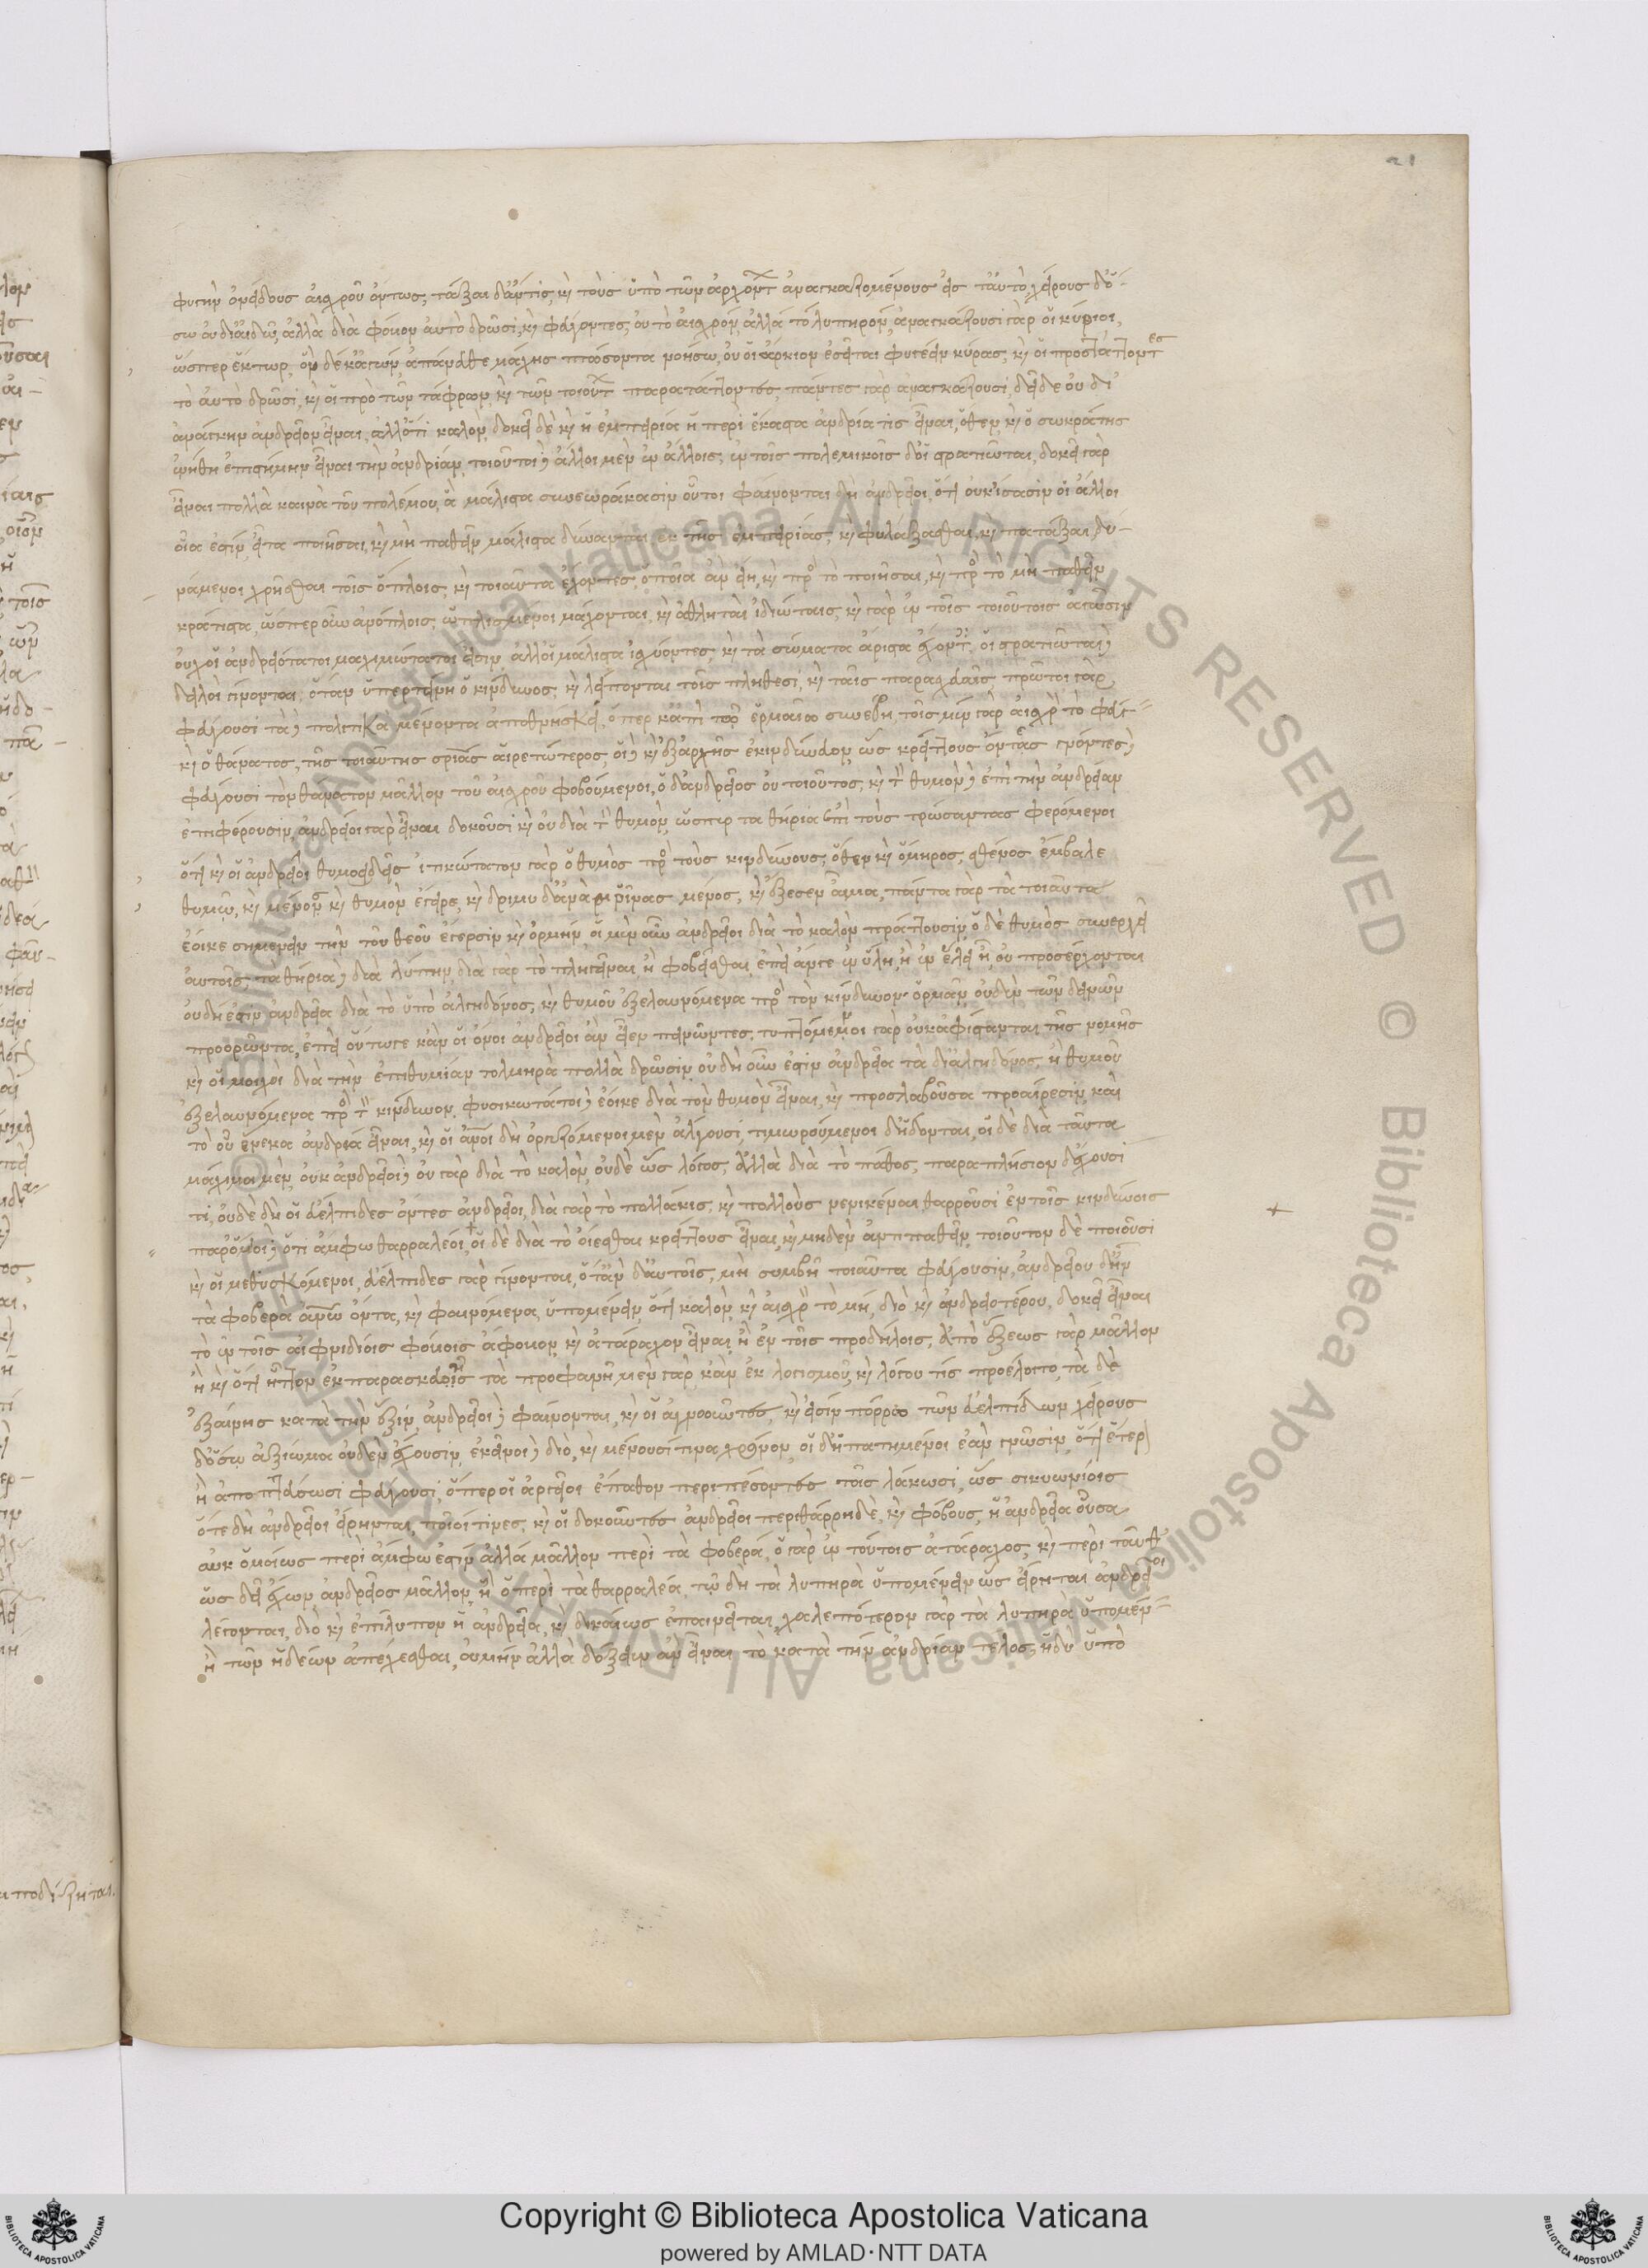 φυγὴν ὀνείδους αἰσχροῦ ὄντος, τάξαι δ' ἄν τις καὶ τοὺς ὑπὸ τῶν ἀρχόντ ἀναγκαζομένους εἰς ταὐτὸ χείρους δ' ὅ-
σω οὐ δι' αἰδῶ, ἀλλὰ διὰ φόβον αὐτὸ δρῶσι, καὶ φεύγοντες, οὐ τὸ αἰσχρόν, ἀλλὰ τὸ λυπηρόν, ἀναγκάζουσι γὰρ οἱ κύριοι,
ὥσπερ ἕκτωρ, ὃν δέ κ' ἐγὼν, ἀπάνευθε μάχης πτώσοντα νοήσω, οὔ οἱ ἄρκιον ἐσεῖται φυγέειν κύνας, καὶ οἱ προστάττοντες
τὸ αὐτὸ δρῶσι, καὶ οἱ πρὸ τῶν τάφρων, καὶ τῶν τοιούτ παρατάττοντες, πάντες γὰρ ἀναγκάζουσι, δεῖ δὲ οὐ δι'
ἀνάγκην ἀνδρεῖον εἶναι, ἀλλ' ὅτι καλόν, δοκεῖ δὲ καὶ ἡ ἐμπειρία ἡ περὶ ἕκαστα ἀνδρία τις εἶναι, ὅθεν καὶ ὁ σωκράτης
ᾠήθη ἐπιστήμην εἶναι τὴν ἀνδρίαν, τοιοῦτοι δὲ ἄλλοι μὲν ἐν ἄλλοις, ἐν τοῖς πολεμικοῖς δ' οἱ στρατιῶται, δοκεῖ γὰρ
εἶναι πολλὰ καινὰ τοῦ πολέμου, ἃ μάλιστα συνεωράκασιν οὗτοι φαίνονται δὴ ἀνδρεῖοι, ὅτι οὐκ ἴσασιν οἱ ἄλλοι
οἷα ἐστίν, εἶτα ποιῆσαι, καὶ μὴ παθεῖν μάλιστα δύνανται ἐκ τῆς ἐμπειρίας, καὶ φυλάξασθαι, καὶ πατάξαι, δυ-
νάμενοι χρῆσθαι τοῖς ὅπλοις, καὶ τοιαῦτα ἔχοντες, ὁποῖα ἂν εἴη, καὶ πρὸς τὸ ποιῆσαι, καὶ πρὸς τὸ μὴ παθεῖν
κράτιστα, ὥσπερ οὖν ἀνόπλοις, ὡπλισμένοι μάχονται, καὶ ἀθληταὶ ἰδιώταις, καὶ γὰρ ἐν τοῖς τοιούτοις ἀγῶσιν
οὐχ οἱ ἀνδρειότατοι μαχιμώτατοι εἰσιν, ἀλλ' οἱ μάλιστα ἰσχύοντες, καὶ τὰ σώματα ἄριστα ἔχοντ, οἱ στρατιῶται δὲ
δειλοὶ γίνονται, ὅταν ὑπερτείνη ὁ κίνδυνος, καὶ λείπονται τοῖς πλήθεσι, καὶ ταῖς παρασκευαῖς, πρῶτοι γὰρ
φεύγουσι τὰ δὲ πολιτικὰ μένοντα ἀποθνήσκει, ὅπερ κἀπὶ τῶ ἑρμαίω συνέβη, τοῖς μὲν γὰρ αἰσχρὸν τὸ φεύγ
καὶ ὁ θάνατος, τῆς τοιαύτης σρίας αἱρετώτερος, οἱ δὲ καὶ ἐξ ἀρχῆς ἐκινδύνευον, ὡς κρείττους ὄντες γνόντες δὲ
φεύγουσι τὸν θάνατον μᾶλλον τοῦ αἰσχροῦ φοβούμενοι, ὁ δ' ἀνδρεῖος οὐ τοιοῦτος, καὶ τὸν θυμὸν δὲ ἐπὶ τὴν ἀνδρείαν
ἐπιφέρουσιν, ἀνδρεῖοι γὰρ εἶναι δοκοῦσι καὶ οὐ διὰ τὸν θυμόν, ὥσπερ τὰ θηρία ἐπὶ τοὺς τρώσαντας φερόμενοι
ὅτι καὶ οἱ ἀνδρεῖοι θυμοειδεῖς ἰτικώτατον γὰρ ὁ θυμὸς πρὸς τοὺς κινδύνους, ὅθεν καὶ ὅμηρος, σθένος ἔμβαλε
θυμῶ, καὶ μένος καὶ θυμὸν ἔγειρε, καὶ δριμὺ δ' ἀνὰ ῥῖνας μένος, καὶ ἔζεσεν αἷμα, πάντα γὰρ τὰ τοιαῦτα
ἔοικε σημαίνειν τὴν τοῦ θεοῦ ἔγερσιν καὶ ὁρμήν, οἱ μὲν οὖν ἀνδρεῖοι διὰ τὸ καλὸν πράττουσιν, ὁ δὲ θυμὸς συνεργεῖ
αὐτοῖς, τὰ θηρία δὲ διὰ λύπην, διὰ γὰρ τὸ πληγῆναι ἢ φοβεῖσθαι, ἐπεὶ ἄν γε ἐν ὕλη, ἢ ἐν ἕλει ᾖ, οὐ προσέρχονται
οὐ δή ἐστιν ἀνδρεῖα διὰ τὸ ὑπὸ ἀλγηδόνος, καὶ θυμοῦ ἐξελαυνόμενα πρὸς τὸν κίνδυνον ὁρμᾶν, οὐδὲν τῶν δεινῶν
προορῶντα, ἐπεὶ οὕτω γε κἂν οἱ ὄνοι ἀνδρεῖοι ἂν εἶεν πεινῶντες, τυπτόμενοι γὰρ οὐκ ἀφίστανται τῆς νομῆς
καὶ οἱ μοιχοὶ διὰ τὴν ἐπιθυμίαν τολμηρὰ πολλὰ δρῶσιν, οὐ δὴ οὖν ἐστιν ἀνδρεῖα τὰ δι' ἀλγηδόνος ἢ θυμοῦ
ἐξελαυνόμενα πρὸς τὸν κίνδυνον, φυσικωτάτοι δὲ ἔοικε διὰ τὸν θυμὸν εἶναι, καὶ προσλαβοῦσα προαίρεσιν, καὶ
τὸ οὗ ἕνεκα ἀνδρία εἶναι, καὶ οἱ ἄνοι δὴ ὀργιζόμενοι μὲν ἀλγοῦσι, τιμωρούμενοι δ' ἥδονται, οἱ δὲ διὰ ταῦτα
μάχιμοι μέν, οὐκ ἀνδρεῖοι δὲ οὐ γὰρ διὰ τὸ καλόν, οὐδὲ ὡς λόγος, ἀλλὰ διὰ τὸ πάθος, παραπλήσιον δ' ἔχουσί
τι, οὐδὲ δὴ οἱ εὐέλπιδες ὄντες ἀνδρεῖοι, διὰ γὰρ τὸ πολλάκις, καὶ πολλοὺς νενικέναι θαρροῦσι ἐν τοῖς κινδύνοις
παρόμοιοι δὲ ὅτι ἄμφω θαρραλέοι, οἱ δὲ διὰ τὸ οἴεσθαι κρείττους εἶναι, καὶ μηδὲν ἀντιπαθεῖν, τοιοῦτον δὲ ποιοῦσι
καὶ οἱ μεθυσκόμενοι, εὐέλπιδες γὰρ γίνονται, ὅταν δ' αὐτοῖς, μὴ συμβῆ τοιαῦτα φεύγουσιν, ἀνδρείου δ' ἦν
τὰ φοβερὰ ἀνω ὄντα, καὶ φαινόμενα, ὑπομένειν, ὅτι καλόν, καὶ αἰσχρὸν τὸ μή, διὸ καὶ ἀνδρειοτέρου, δοκεῖ εἶναι
τὸ ἐν τοῖς αἰφνιδίοις φόβοις ἄφοβον, καὶ ἀτάραχον εἶναι, ἢ ἐν τοῖς προδήλοις, ἀπὸ ἕξεως γὰρ μᾶλλον
ἢ καὶ ὅτι ἧττον ἐκ παρασκευῆς τὰ προφανῆ μὲν γὰρ κἂν ἐκ λογισμοῦ, καὶ λόγου τις προέλοιτο, τὰ δὲ
ἐξαίφνης κατὰ τὴν ἕξιν, ἀνδρεῖοι δὲ φαίνονται, καὶ οἱ ἀγνοοῦντες, καὶ εἰσὶν πόρρω τῶν εὐελπίδων χείρους
δ' ὅσω ἀξίωμα οὐδὲν ἔχουσιν, ἐκεῖνοι δὲ διὸ, καὶ μένουσί τινα χρόνον, οἱ δ' ἠπατημένοι ἐὰν γνῶσιν, ὅτι ἕτερ
ἢ ὑποπτεύσωσι φεύγουσι, ὅπερ οἱ ἀργεῖοι ἔπαθον περιπεσόντες τοῖς λάκωσι, ὡς σικυωνίοις
οἵ τε δὴ ἀνδρεῖοι εἴρηνται, ποῖοί τινες, καὶ οἱ δοκοῦντες ἀνδρεῖοι περὶ θάρρη δὲ, καὶ φόβους, ἡ ἀνδρεία οὖσα
οὐκ ὁμοίως περὶ ἄμφω ἐστίν ἀλλὰ μᾶλλον περὶ τὰ φοβερά, ὁ γὰρ ἐν τούτοις ἀτάραχος, καὶ περὶ ταῦθ'
ὡς δεῖ ἔχων, ἀνδρεῖος μᾶλλον, ἢ ὁ περὶ τὰ θαρραλέα, τῷ δὴ τὰ λυπηρὰ ὑπομένειν ὡς εἴρηται ἀνδρεῖοι
λέγονται, διὸ καὶ ἐπίλυπον ἡ ἀνδρεία, καὶ δικαίως ἐπαινεῖται, χαλεπώτερον γὰρ τὰ λυπηρὰ ὑπομέν
ἢ τῶν ἡδέων ἀπέχεσθαι, οὐ μὴν ἀλλὰ δόξειεν ἂν εἶναι τὸ κατὰ τὴν ἀνδρίαν τέλος, ἡδὺ ὑπὸ
21
Copyright © Biblioteca Apostolica Vaticana
powered by AMLAD·NTT DATA